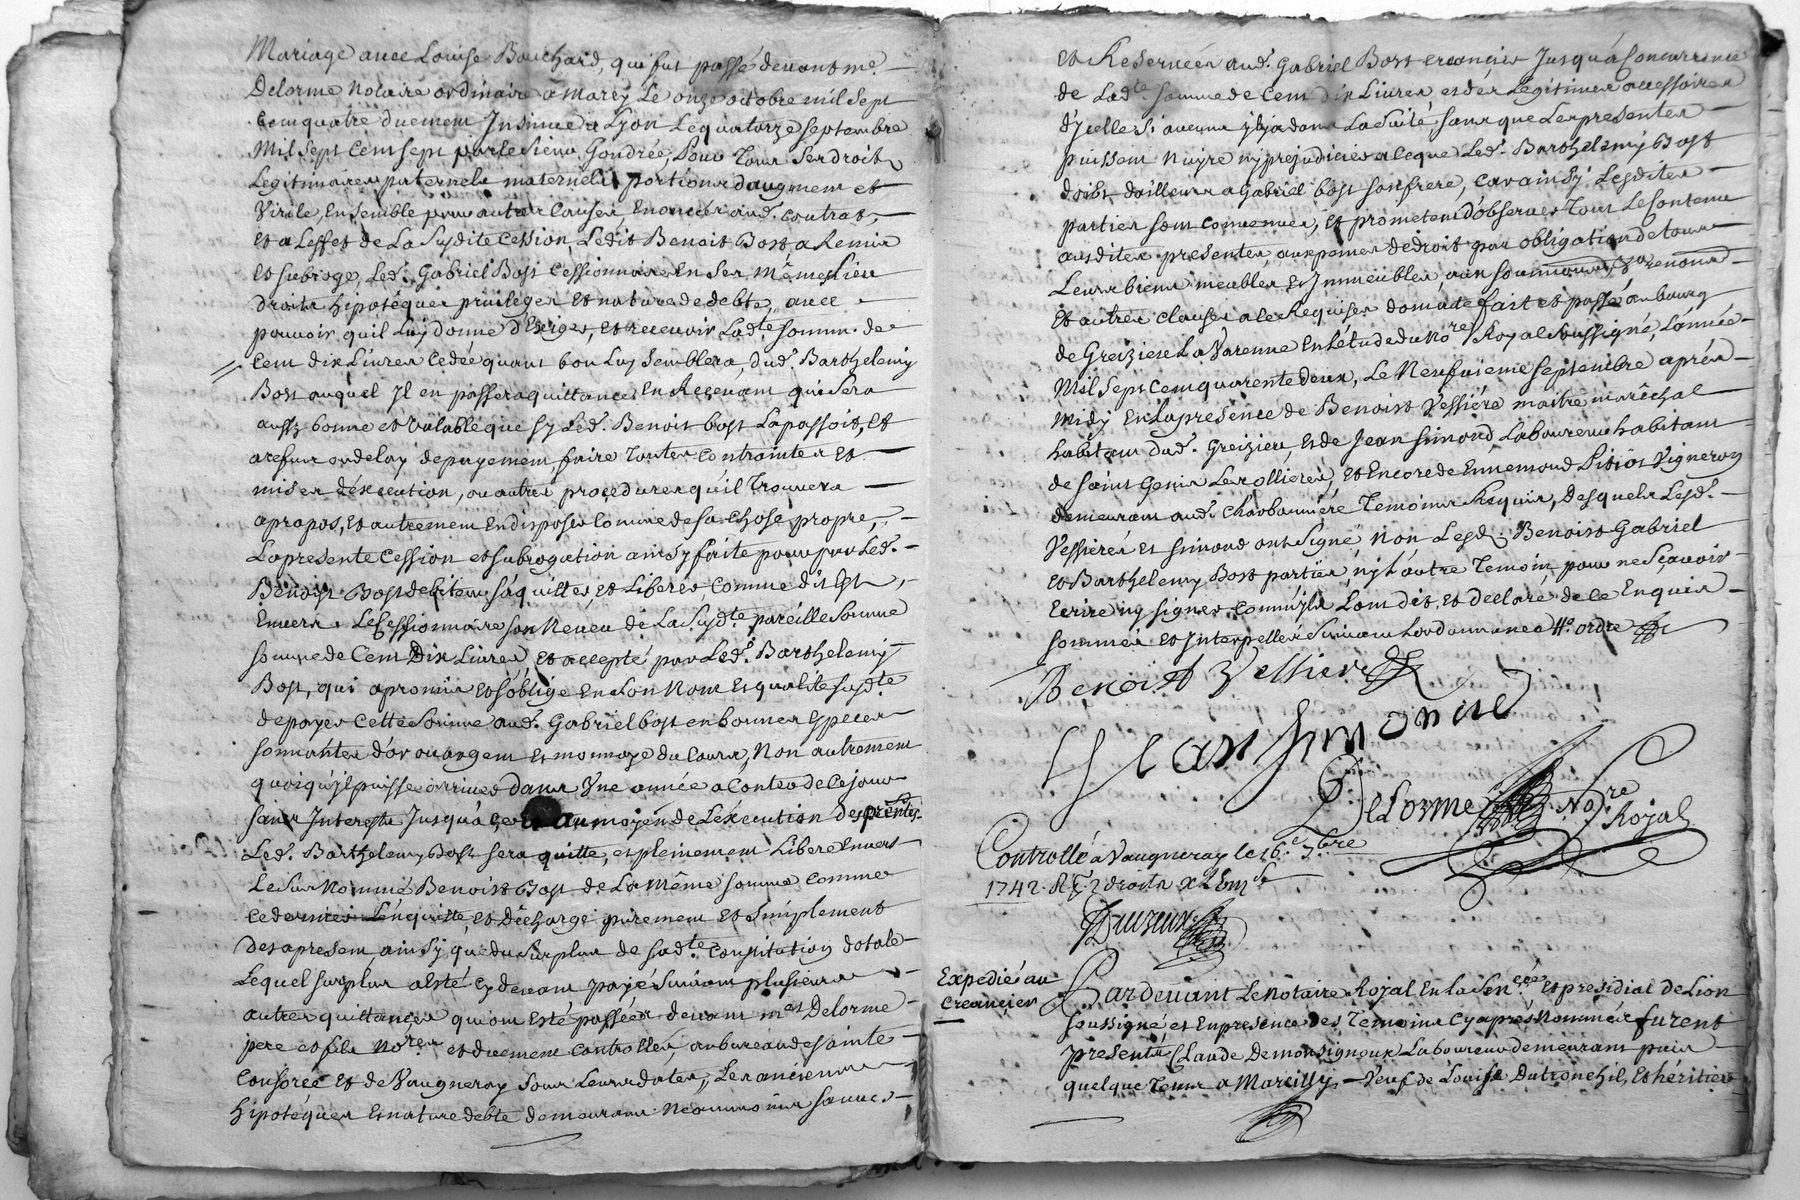 Mariage avec Louise Bouchard, qui fut passé devant me.
Delorme Notaire ordinaire a Marcy Le onze octobre mil sept
cent quatre duement Insinué a Lyon Le quatorze septembre
Mil sept cent sept par le sieur Gondrée, Pour Tous ses droits
Legitimaires paternels maternels portions d'augment et
Virile, Ensemble pour autres Causes, Enoncées aud. contrat,
Et a L'effet de La Susdite Cession, Ledit Benoist Bost a Remis
Et subrogé, Led. Gabriel Bost Cessionnaire En ses mêmes Lieu
droits hipotéques privileges Et nature de debte, avec
pouvoir qu'il Luy donne d'Exiger, et recevoir Ladte. somme de
Cent dix Livres Cedée quant bon Luy semblera, dud. Barthelemy
Bost auquel Il en passera quittance En Recevant qui sera
aussy bonne et valable que sy Led. Benoist bost La passoit, Et
a refus ou delay de payement, faire Toutes Contraintes Et
mises d'éxecution, ou autres procedures qu'il Trouvera
apropos, Et autrement En disposer Comme de sa Chose propre,
La presente Cession et subrogation ainsy faite pour par Led.
Benoist Bost debiteur s'aquitter, et Liberer, Comme dit Est,
Envers Le Cessionnaire son Neveu de La Susdte. pareille somme
somme de Cent Dix Livres, Et accepté par Led. Barthelemy
Bost, qui a promis Et s'oblige En son Nom Et qualite susdte
de payer Cette somme aud. Gabriel bost en bonnes Especes
sonnantes d'or ou argent Et monnoye du Cours, Non autrement
quoiqu'il puisse arriver dans Vne année a Conter de Ce jour
sans Interests Jusqu'a au moyen de L'éxecution des prentes
Led. Barthelemy Bost sera quitte, et pleinement Libere Envers
Le sus Nommé Benoist Bost de La Même somme Comme
Ce dernier L'enquitte, Et décharge purement Et simplement
des apresent, ainsy que du Surplus de sadte. Constitution dotale
Lequel surplus a Esté Cy devant payé Suivant plusieurs
autres quittances qui ont Esté passées devant mes Delorme
pere et fils Nores et duement Controllées, au bureau de sainte
Consorce Et de Vaugneray sous Leurs dates, Les anciennes
hipotéques Et nature debte demeurans Neanmoins sauves
Et Reservées aud. Gabriel Bost creancier Jusqu'a Concurrence
de Ladte. somme de Cent dix Livres et des Legitimes accessoires
d'ycelles, sy aucuns y a dans La Suite sans que Les presentes
puissent Nuyre ny prejudicier a Ce que Led. Barthelemy Bost
doibt d'ailleurs a Gabriel bost son frere, Car ainsy Lesdites
parties sont Convenues, Et promettent d'observer Tout Le Contenu
ausdites presentes, aux peines de droit par obligation de tous
Leurs biens meubles Et Immeubles, aux soumissions, renond
Et autres Clauses a Ce Requises dont acte fait et passé au bourg
de Greizieu La Varenne En L'étude du Nore Royal soussigné, L'année
Mil Sept Cent quarente deux, Le Neufvieme septembre aprés
Midy En La presence de Benoist Vessiére maitre maréchal
habitant dud. Greizieu, Et de Jean Simond Laboureur habitant
de saint Genis Les ollieres, Et Encore de Ennemond Vigneron
demeurant aud. Charbonniére Temoins Requis, desquels Lesd.
Vessiéres et Simond ont Signé Non Lesd. Benoist Gabriel
et Barthelemy Bost parties, ny L'autre Temoin pour ne Scavoir
Ecrire ny signer Comm'ils L'ont dit et Declaré, de Ce Enquis
sommés et Interpellés Suivant Lordonnance
Benoist Vessiere
Jean Simond
Delorme Nore
Royal
Controllé a Vaugneray le 16e 7bre
1742.
Expedié au
Creancier
Pardevant Le Notaire Royal En La Sencée Et presidial de Lion
soussigné et En presence des Temoins Cy aprés Nommés furent
presents Claude Demonsignoux Laboureur demeurant puis
quelque Tems a Marcilly Veuf de Louise Dutronchil, Et héritier